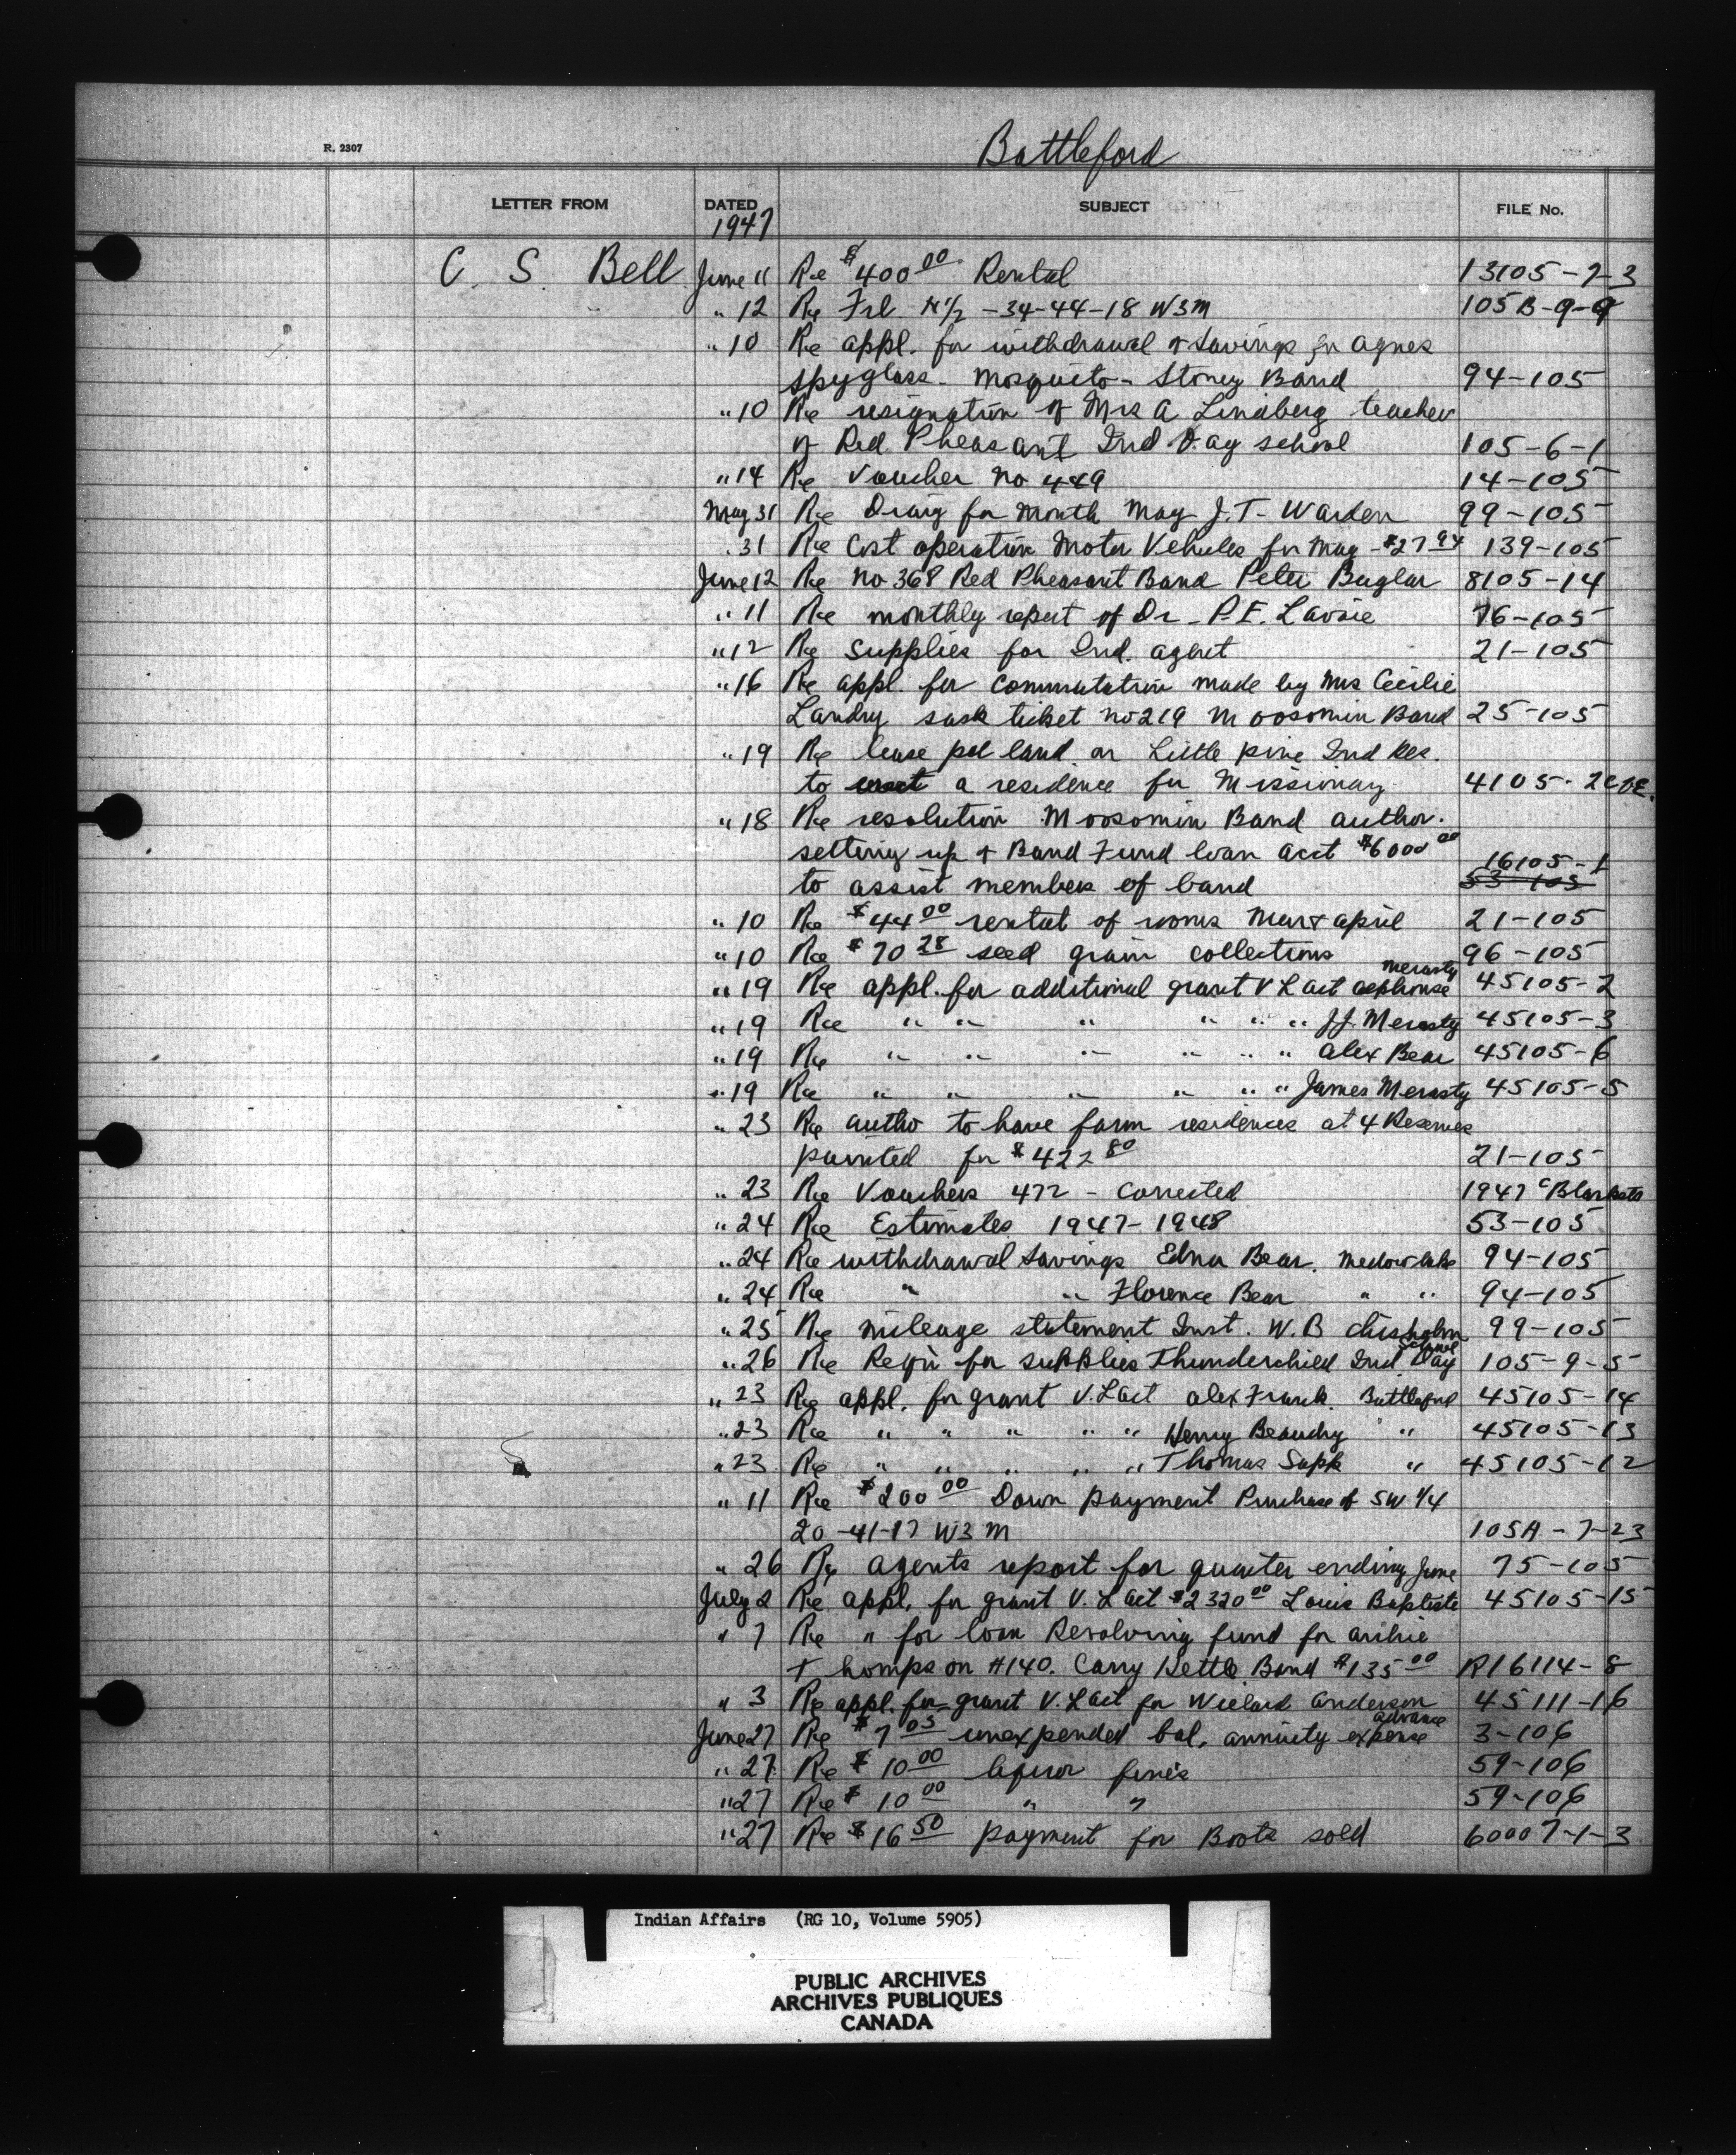 Battleford
R. 2307
LETTER FROM DATED SUBJECT FILE No.
1947
C. S. Bell June 11 Re $400 00 Rental 13105-7-3
" 12 Re Frl N½ -34-44-18 W3M 105B-9-9
" 10 Re appl. for withdrawal of Savings for Agnes
Spyglass - Mosquito - Stoney Band 94-105
" 10 Re resignation of Mrs A Lindberg teacher
of Red Pheasant Ind Day school 105-6-1
" 14 Re Voucher No 449 14-105
May 31 Re Diary for month May J.T. Warden 99-105
" 31 Re Cost operation Motor Vehicles for May - $27 94 139-105
June 12 Re No 368 Red Pheasant Band Peter Buglar 8105-14
" 11 Re monthly report of Dr - P.E. Lavoie 76-105
" 12 Re Supplies for Ind. agent 21-105
" 16 Re appl. for Commutation made by Mrs Cecilie
Landry sask ticket no 219 Moosomin Band 25-105
" 19 Re lease pcl land on Little Pine Ind Res.
to erect a residence for Missionary 4105-2 C of E.
" 18 Re resolution Moosomin Band author.
setting up of Band Fund loan acct $6000 00
to assist members of band 16105-1
53-105
" 10 Re $44 00 rental of rooms Mar & April 21-105
" 10 Re $70 28 seed grain collections 96-105
" 19 Re appl. for additional grant V L act alphonse Merasty 45105-2
" 19 Re " " " " " " J.J. Merasty 45105-3
" 19 Re " " " " " " Alex Bear 45105-6
" 19 Re " " " " " " James Merasty 45105-5
" 23 Re autho to have farm residences at 4 Reserves
painted for $422 80 21-105
" 23 Re Vouchers 472 - Corrected 1947 C Blankets
" 24 Re Estimates 1947-1948 53-105
" 24 Re withdrawal Savings Edna Bear. Medow lake 94-105
" 24 Re " " Florence Bear " " 94-105
" 25 Re mileage statement Inst. W.B Chisholm 99-105
" 26 Re Reqn for supplies Thunderchild Ind Day School 105-9-5
" 23 Re appl. for grant V.L act Alex Frank. Battleford 45105-14
" 23 Re " " " " " Henry Beaudry " 45105-13
" 23 Re " " " " " Thomas Sapk " 45105-12
" 11 Re $200 00 Down payment Purchase of SW ¼
20-41-17 W3M 105A-7-23
" 26 Re agents report for quarter ending June 75-105
July 2 Re appl. for grant V. L act $2320 00 Louis Baptiste 45105-15
" 7 Re " for loan Revolving fund for archie
Thompson #140. Carry Kettle Band $135 00 R16114-8
" 3 Re appl. for grant V.L act for Wielard Anderson 45111-16
June 27 Re $7 05 unexpended bal. annuity expense advance 3-106
" 27 Re $10 00 liquor fines 59-106
" 27 Re $10 00 " " 59-106
" 27 Re $16 50 payment for Boots sold 60007-1-3
Indian Affairs (RG 10, Volume 5905)
PUBLIC ARCHIVES
ARCHIVES PUBLIQUES
CANADA